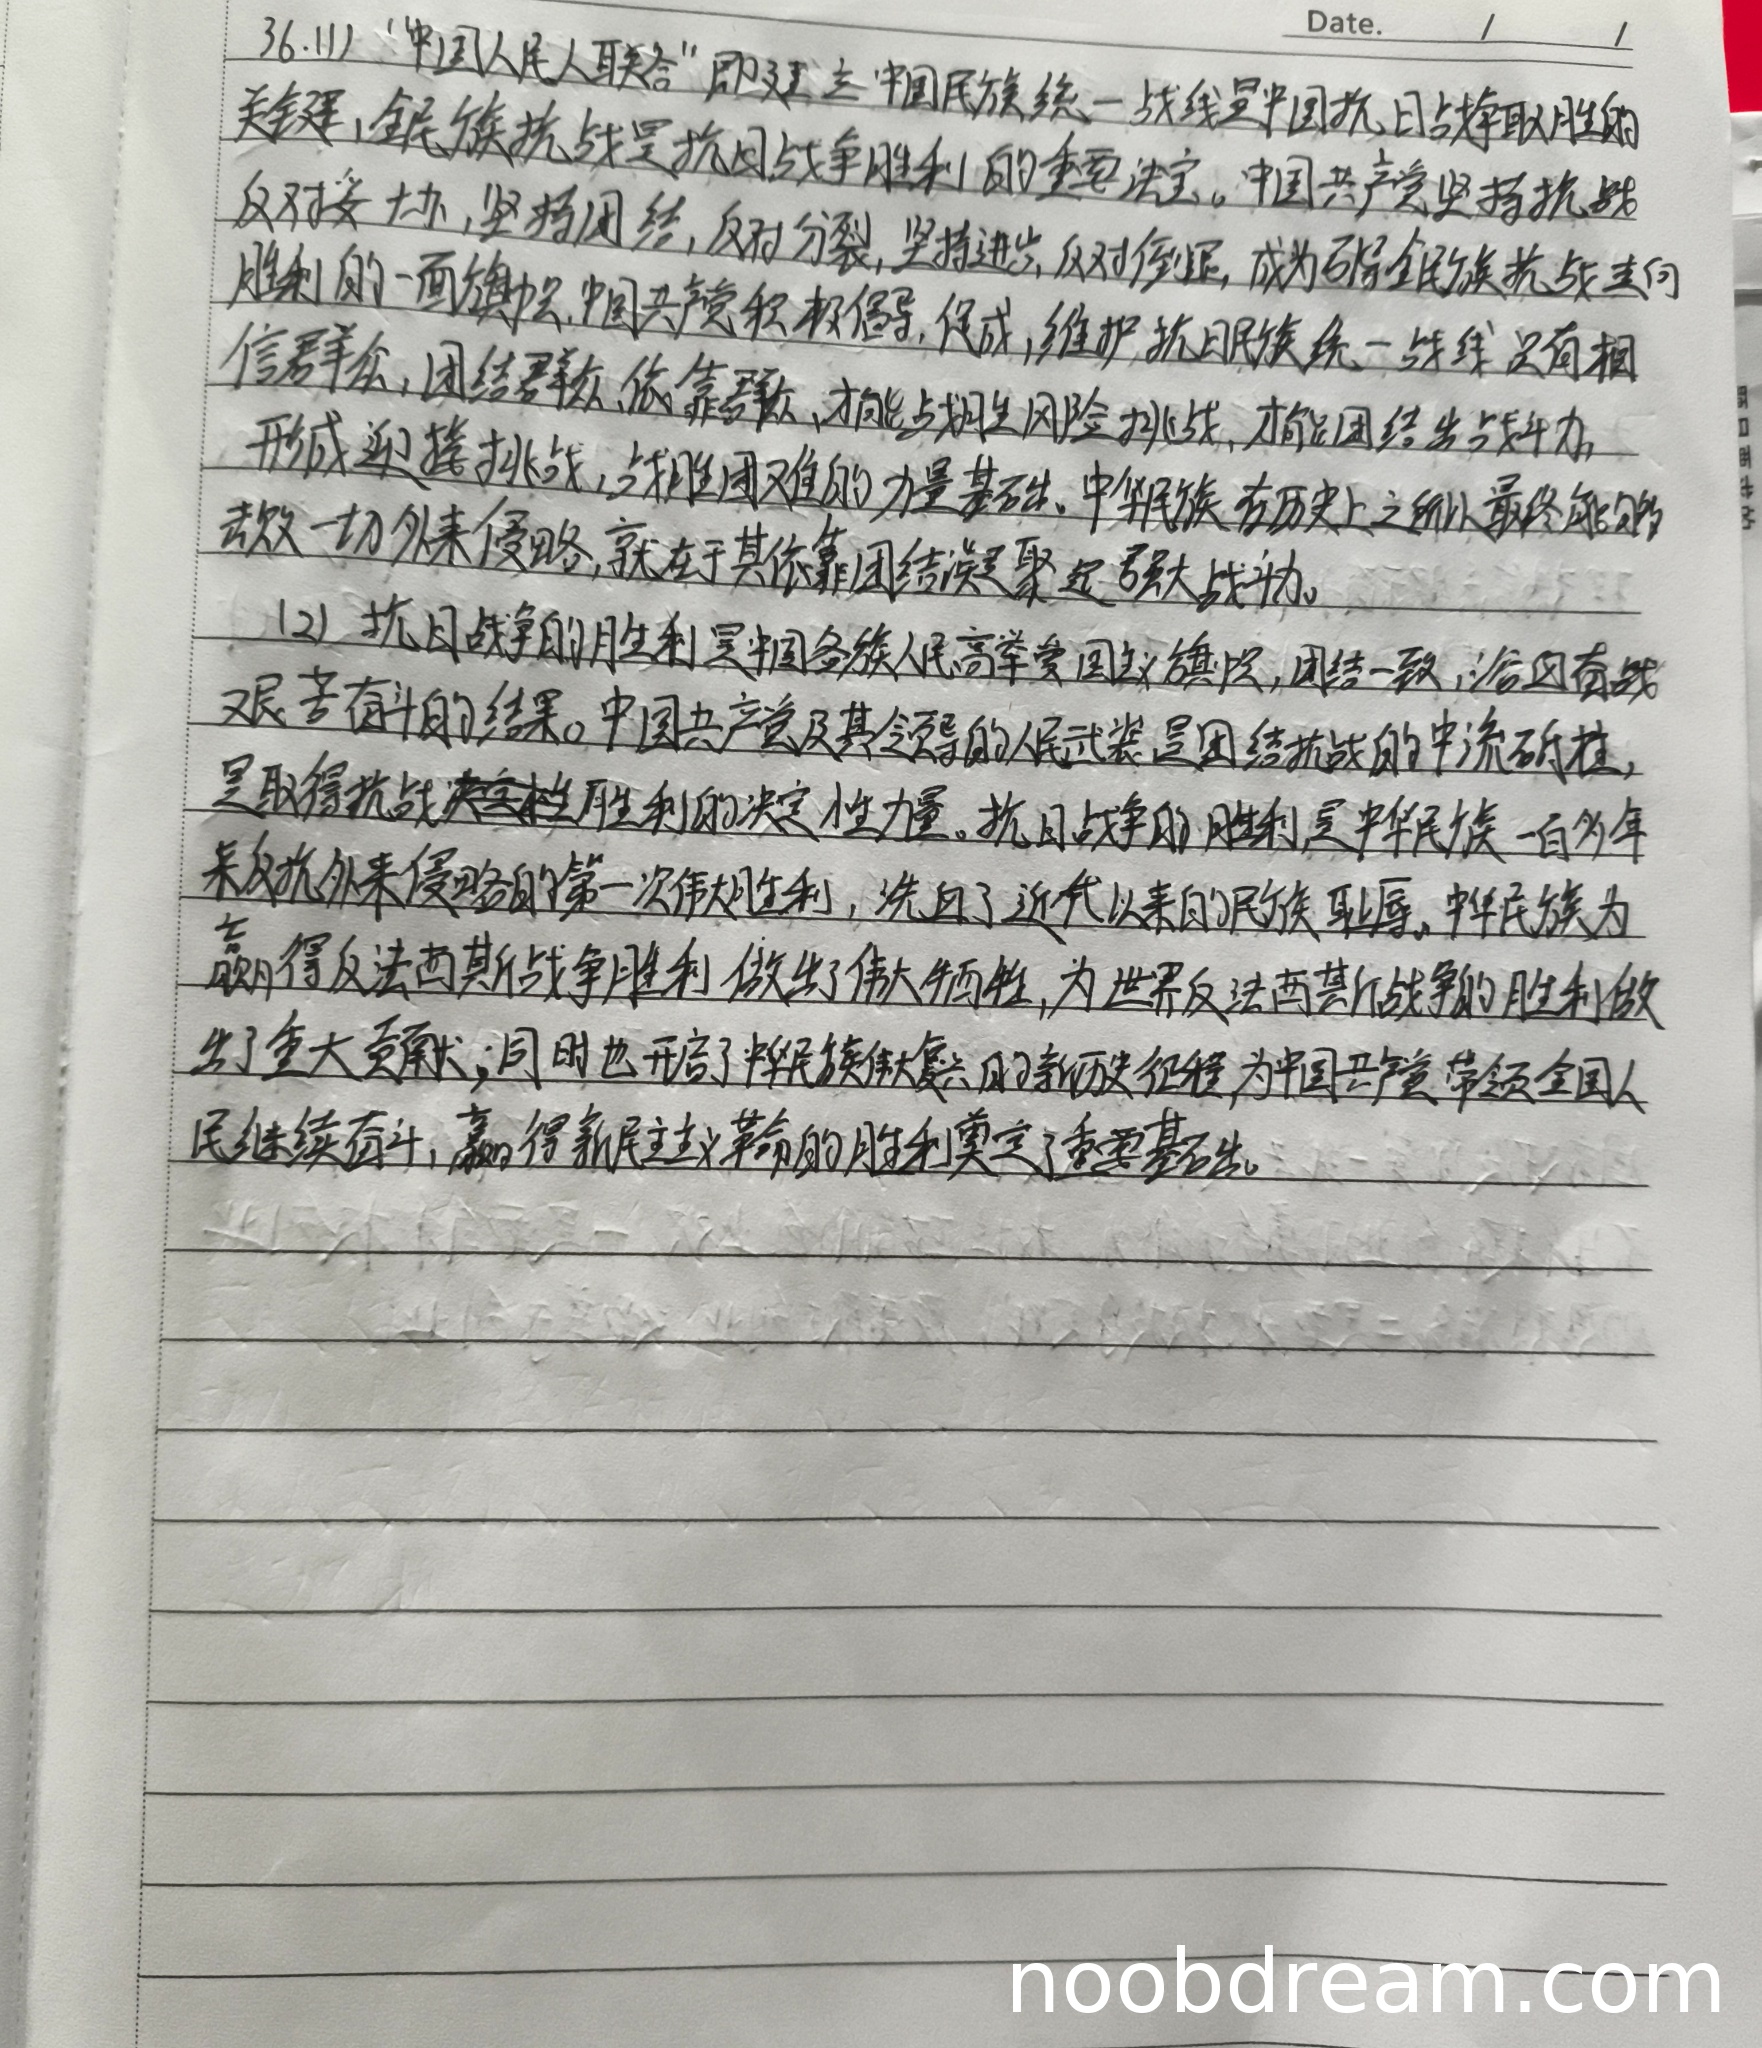 Date. / /
36.(1) “中国人民人联合”即建立中国民族统一战线是中国抗日战争取胜的
关键，全民族抗战是抗日战争胜利的重要法宝。中国共产党坚持抗战
反对妥办，坚持团结，反对分裂，坚持进步，反对倒退，成为引导全民族抗战走向
胜利的一面旗帜，中国共产党积极倡导，促成，维护抗日民族统一战线只有相
信群众，团结群众，依靠群众，才能战胜风险挑战，才能团结出战斗力，
形成迎接挑战，战胜困难的力量基础。中华民族在历史上之所以最终能够
击败一切外来侵略，就在于其依靠团结凝聚起强大战斗力。
(2) 抗日战争的胜利是中国各族人民高举爱国主义旗帜，团结一致，浴血奋战
艰苦奋斗的结果。中国共产党及其领导的人民武装是团结抗战的中流砥柱，
是取得抗战胜利的决定性力量。抗日战争的胜利，是中华民族一百多年
来反抗外来侵略的第一次伟大胜利，洗刷了近代以来的民族耻辱。中华民族为
赢得反法西斯战争胜利做出了伟大牺牲，为世界反法西斯战争的胜利做
出了重大贡献；同时也开启了中华民族伟大复兴的新历史征程，为中国共产党带领全国人
民继续奋斗，赢得新民主主义革命的胜利奠定了重要基础。
noobdream.com